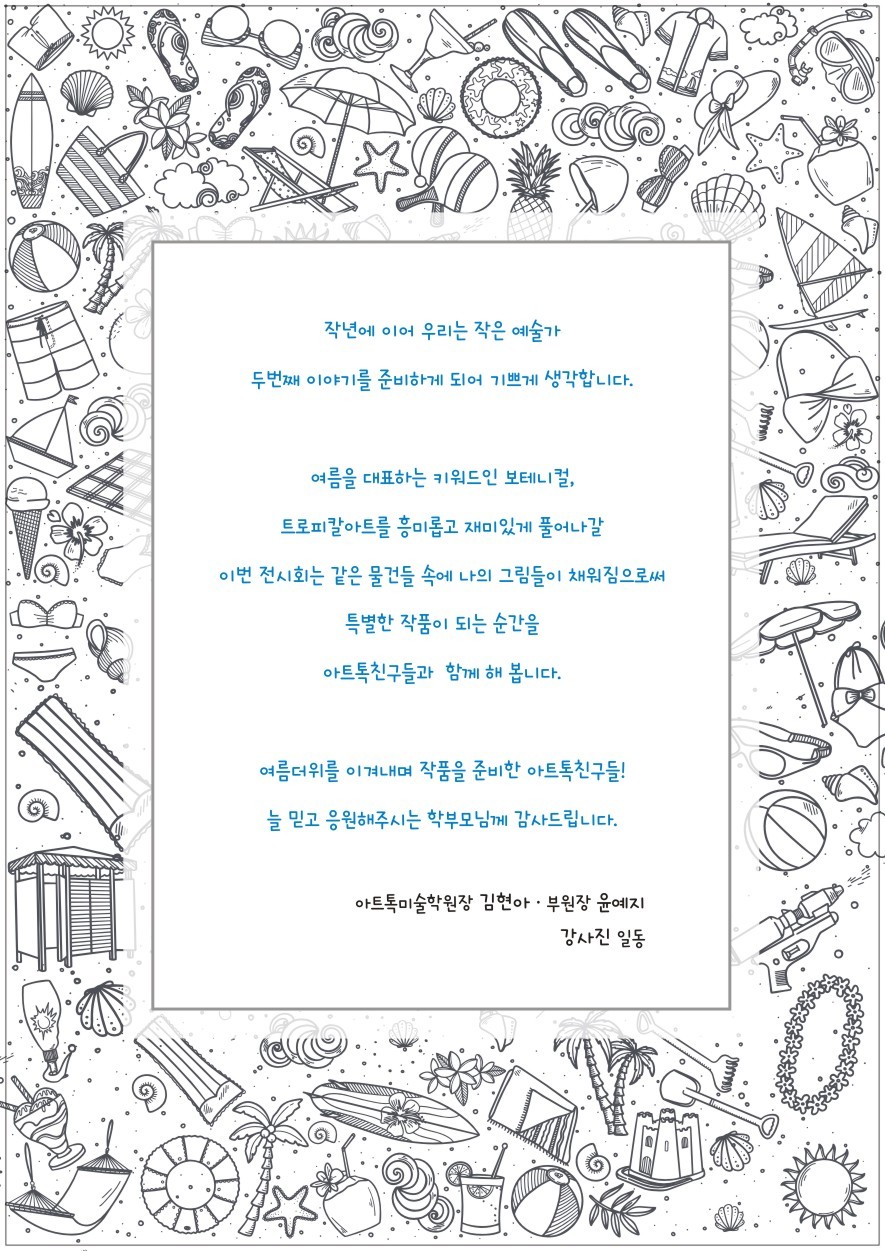 작년에 이어 우리는 작은 예술가
두번째 이야기를 준비하게 되어 기쁘게 생각합니다.
여름을 대표하는 키워드인 보테니컬,
트로피칼아트를 흥미롭고 재미있게 풀어나갈
이번 전시회는 같은 물건들 속에 나의 그림들이 채워짐으로써
특별한 작품이 되는 순간을
아트톡친구들과 함께 해 봅니다.
여름더위를 이겨내며 작품을 준비한 아트톡친구들!
늘 믿고 응원해주시는 학부모님께 감사드립니다.
아트톡미술학원장 김현아 · 부원장 윤예지
강사진 일동